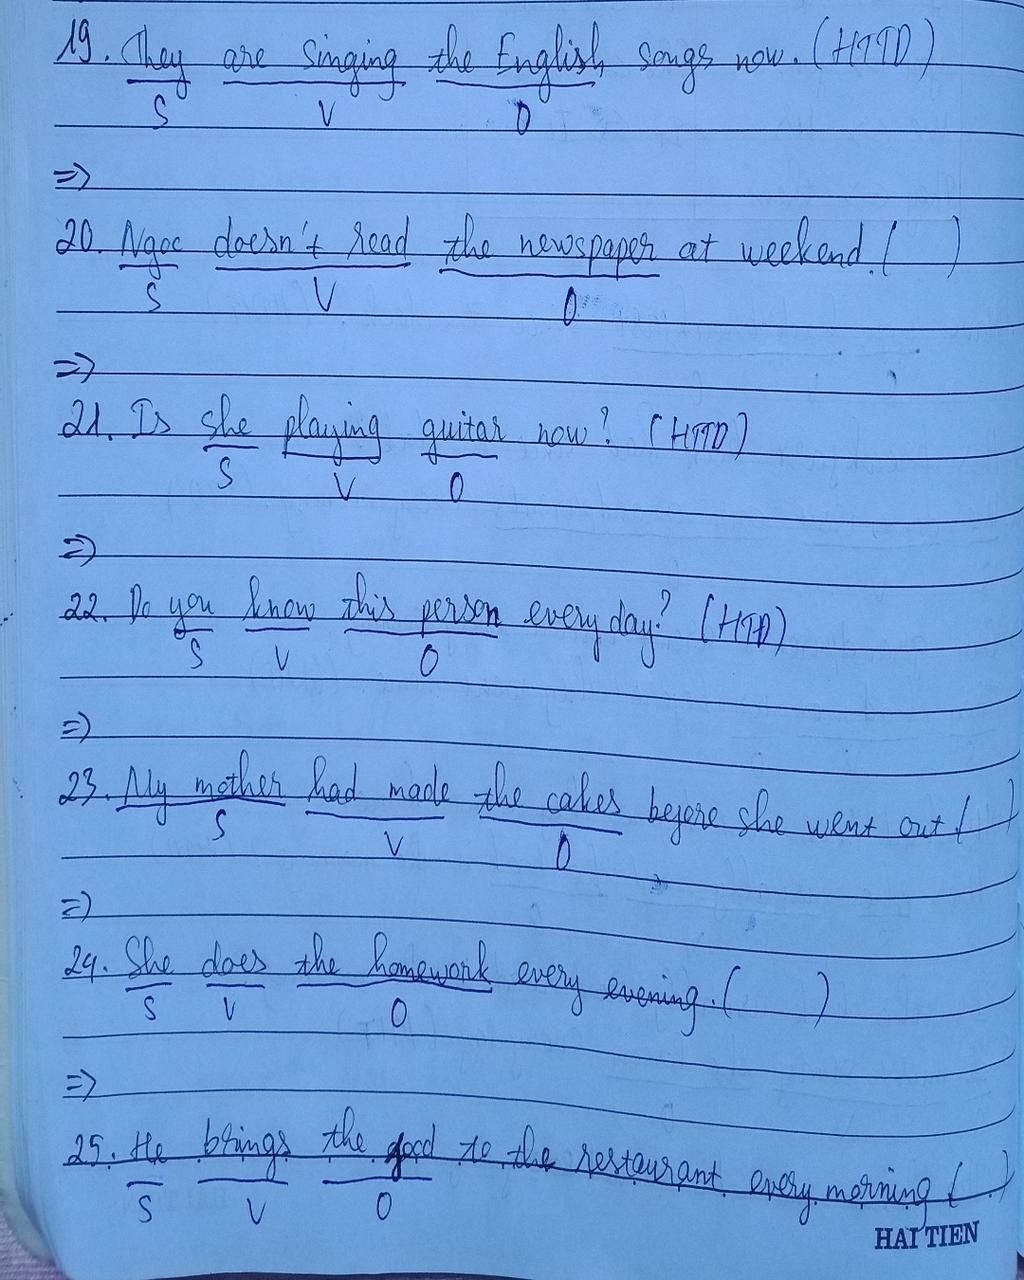 19. They are singing the English songs now. (HTTD)
S V O
=>
20. Ngoc doesn't read the newspaper at weekend. ( )
S V O
=>
21. Is she playing guitar now? (HTTD)
S V O
=>
22. Do you know this person every day? (HTD)
S V O
=>
23. My mother had made the cakes before she went out ( )
S V O
=>
24. She does the homework every evening. ( )
S V O
=>
25. He brings the good to the restaurant every morning ( )
S V O
HAI TIEN